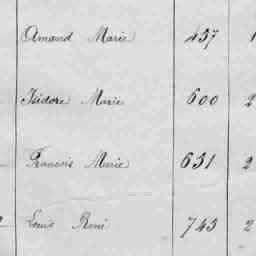 Amand Marie 457 1
Isidore Marie 600 2
Francois Marie 631 2
Louis René 743 2